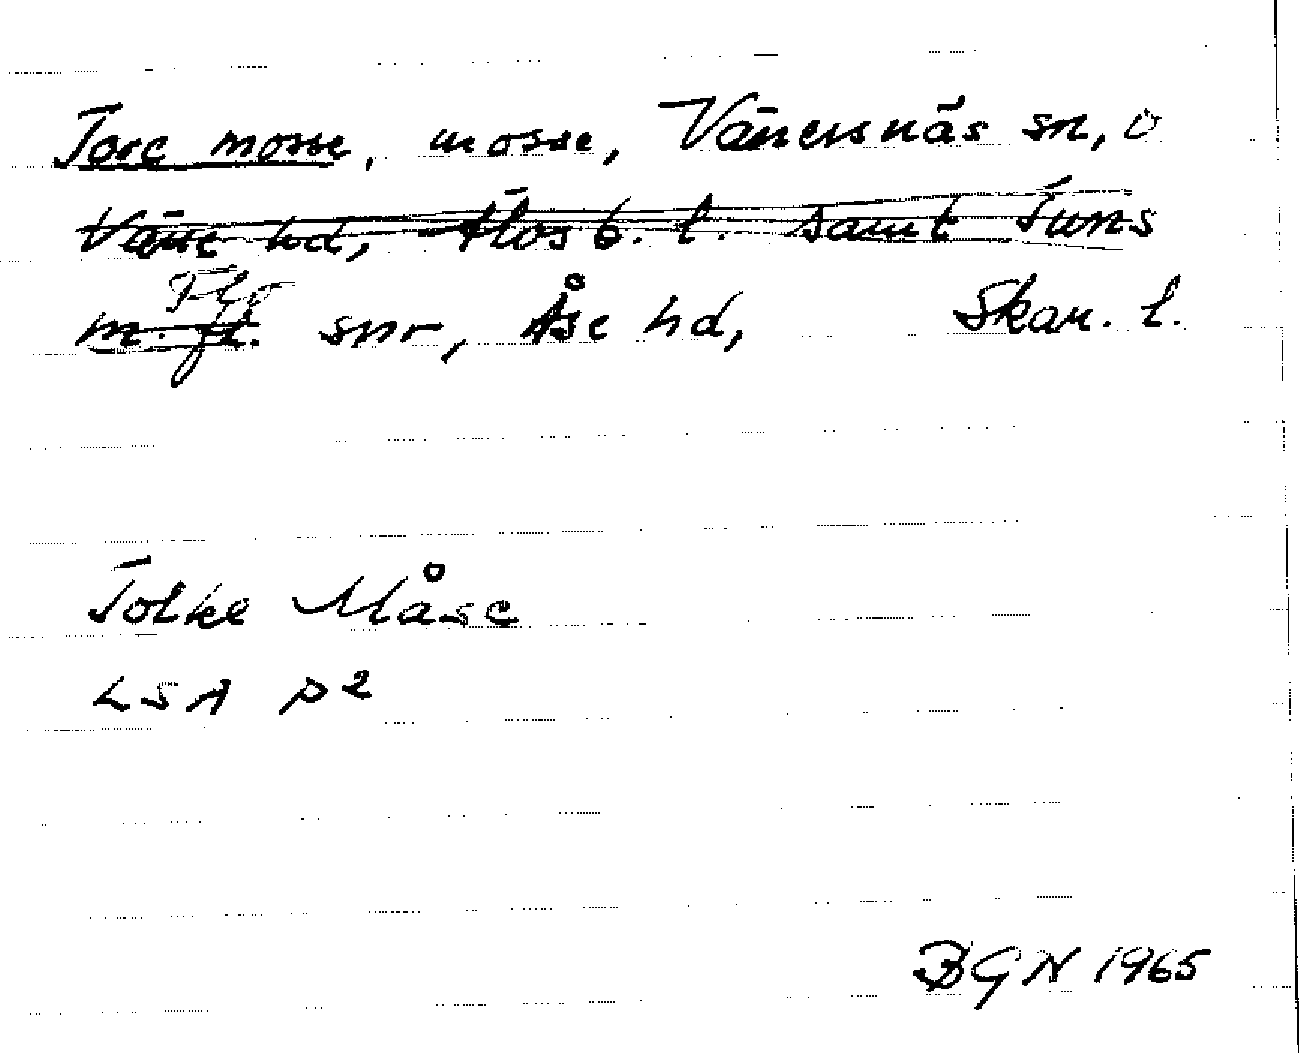 Tore mosse, mosse, Vänersnäs sn, o
Väne hd, Älvsb. l. samt Tuns
Flo
m. fl. snr, Åse hd, Skar. l.
Tolke Måse
LSA P2
BGN 1965